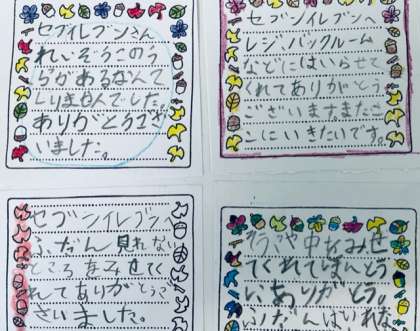 セブイレブンさん
れいぞうこのう
らがあるなんて
しりませんでした。
ありがとうござ
いました。
セブンイレブンへ
レジ、バックルーム
などにはいらせて
くれてありがとう
ございます。またこ
こにいきたいです。
セブンイレブンへ
ふだん見れない
ところをみせてく
れてありがとうご
ざいました。
中をみせ
てくれてほんとう
にありがとう。